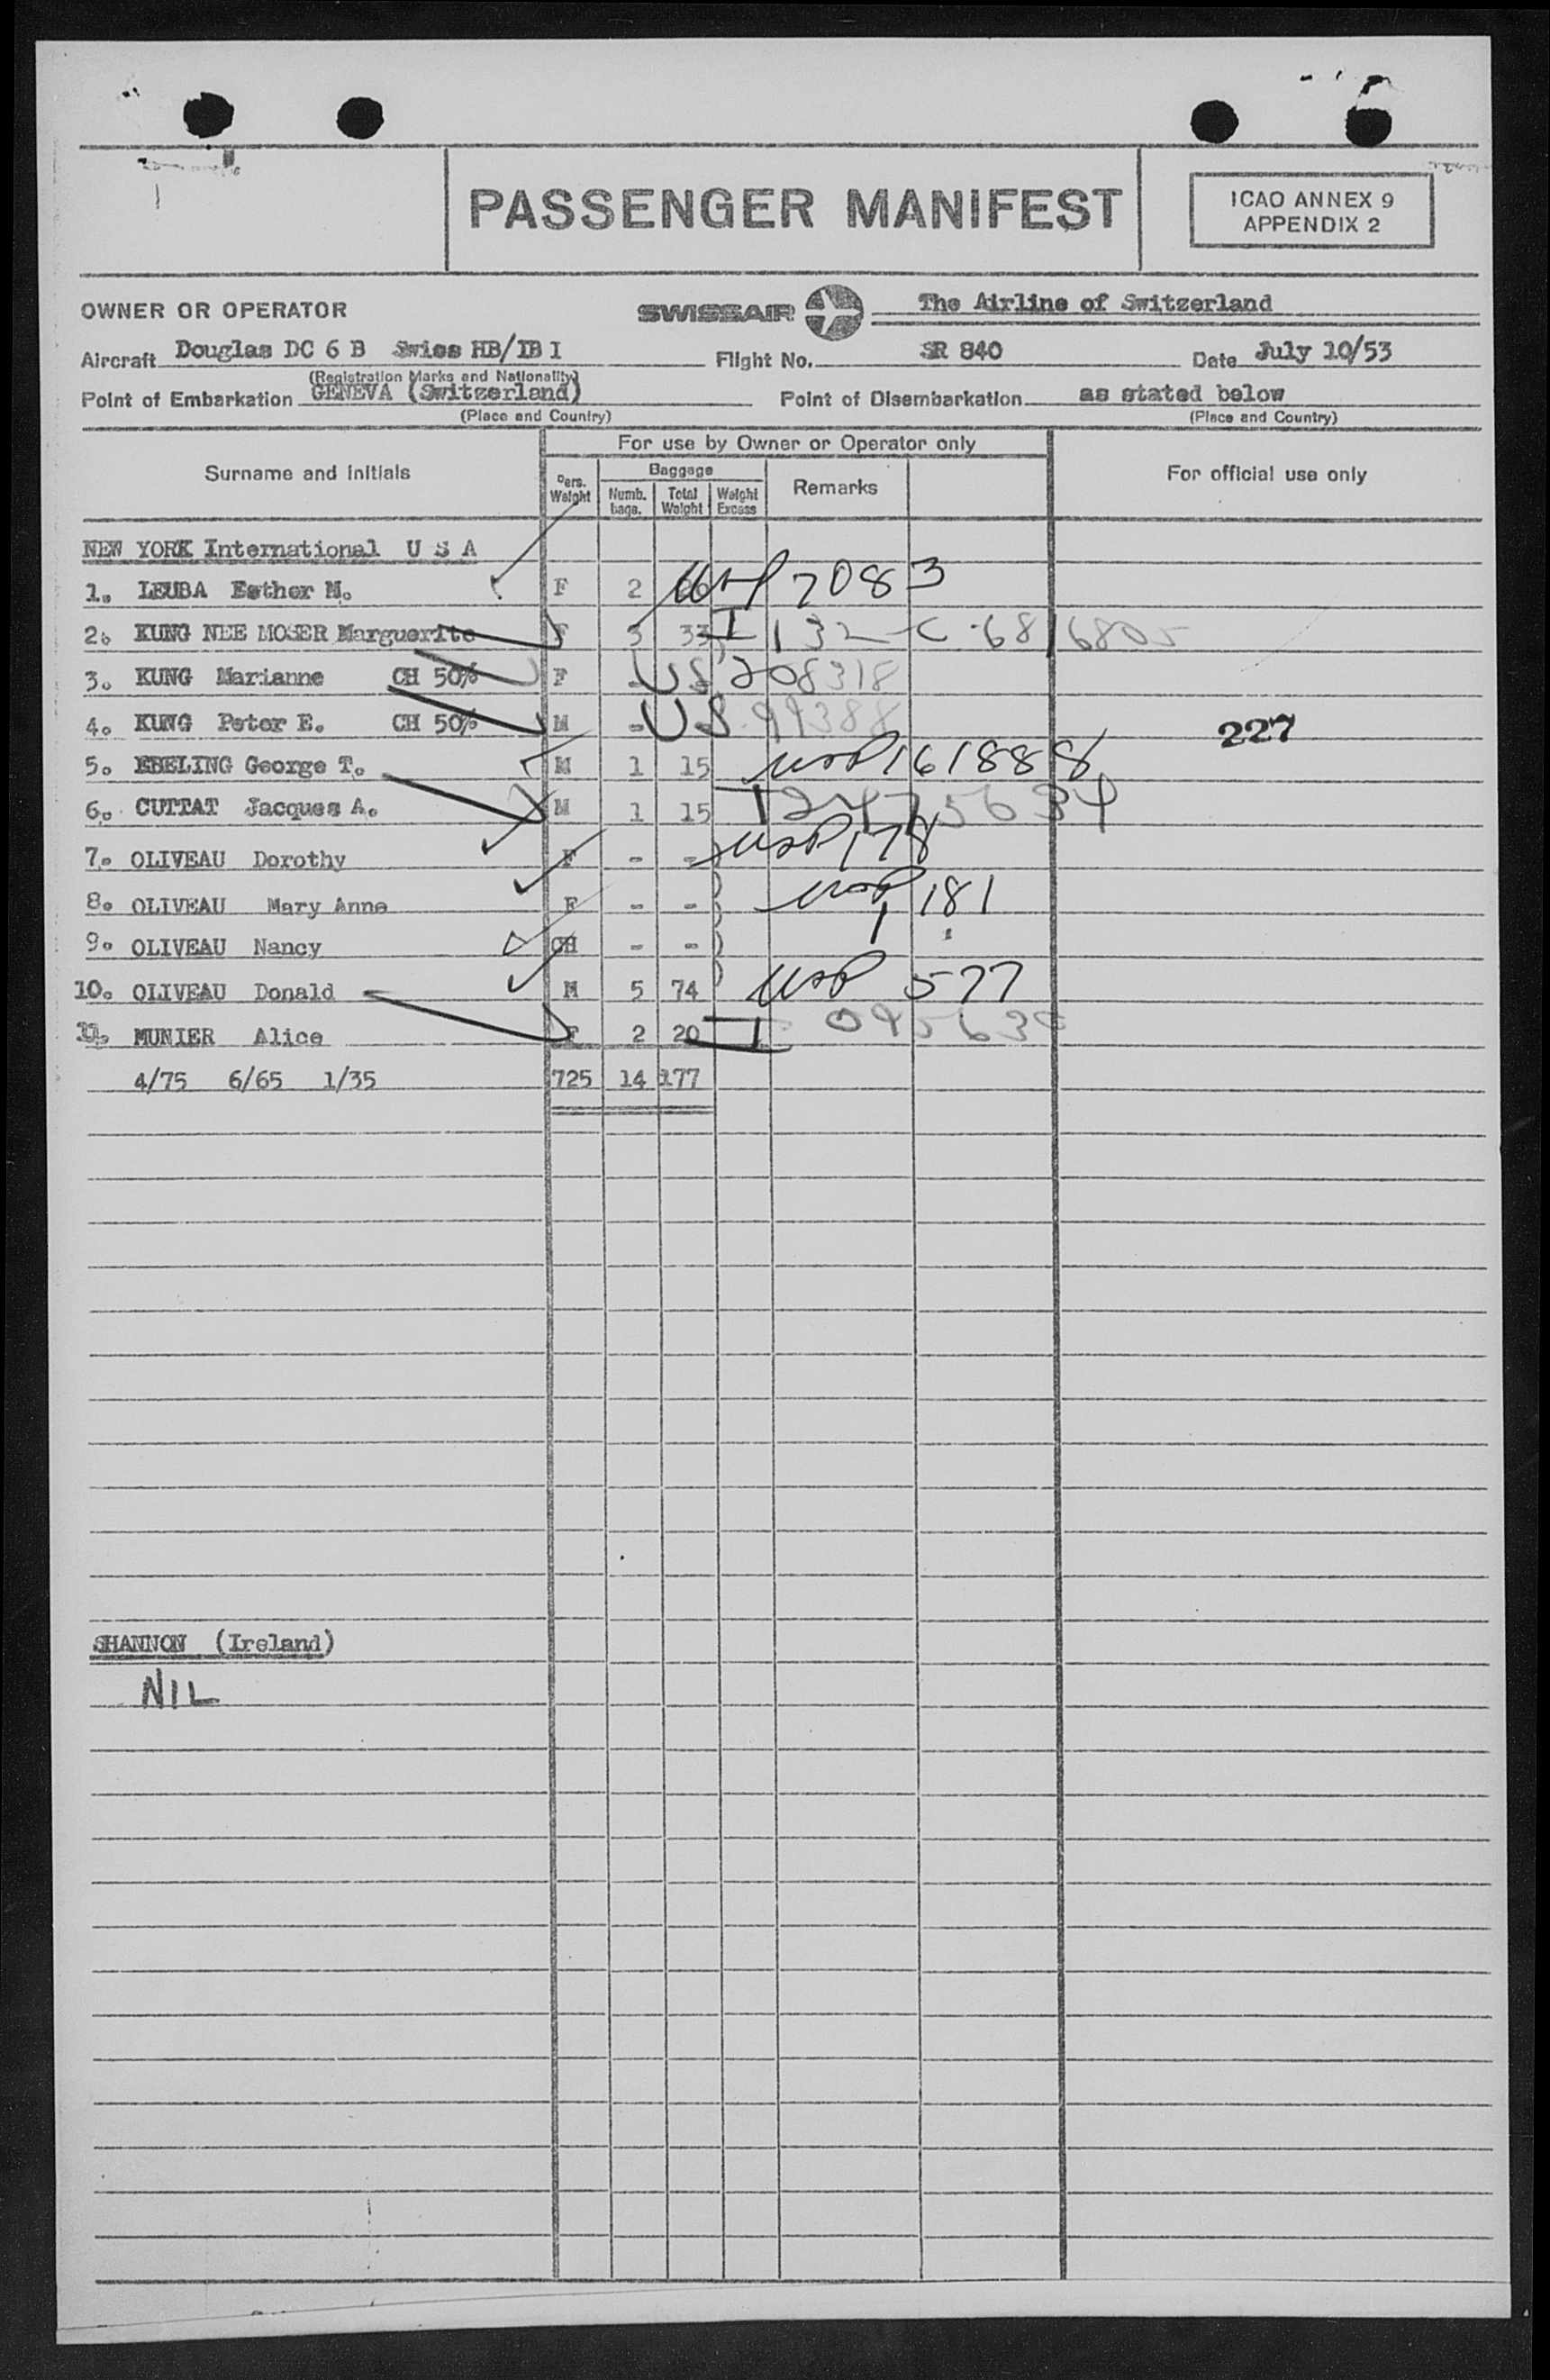 PASSENGER MANIFEST
ICAO ANNEX 9
APPENDIX 2
OWNER OR OPERATOR SWISSAIR The Airline of Switzerland
Aircraft Douglas DC 6 B Swiss HB/IB I Flight No. SR 840 Date July 10/53
(Registration Marks and Nationality)
Point of Embarkation GENEVA (Switzerland) Point of Disembarkation as stated below
(Place and Country) (Place and Country)
For use by Owner or Operator only
Surname and Initials Pers. Weight Baggage Numb. bags. Total Weight Weight Excess Remarks For official use only
NEW YORK International U S A
1. LEUBA Esther M. F 2 7083
2. KUNG NEE MOSER Marguerite F 3 33 I 132
3. KUNG Marianne CH 50% F - US 208318
4. KUNG Peter E. CH 50% M - US 99388 227
5. EBELING George T. M 1 15 USP 161888
6. CUTTAT Jacques A. M 1 15
7. OLIVEAU Dorothy F - - USP 178
8. OLIVEAU Mary Anne F - - USP 181
9. OLIVEAU Nancy CH - -
10. OLIVEAU Donald M 5 74 USP 577
11. MUNIER Alice F 2 20 I
4/75 6/65 1/35 725 14 177
SHANNON (Ireland)
NIL